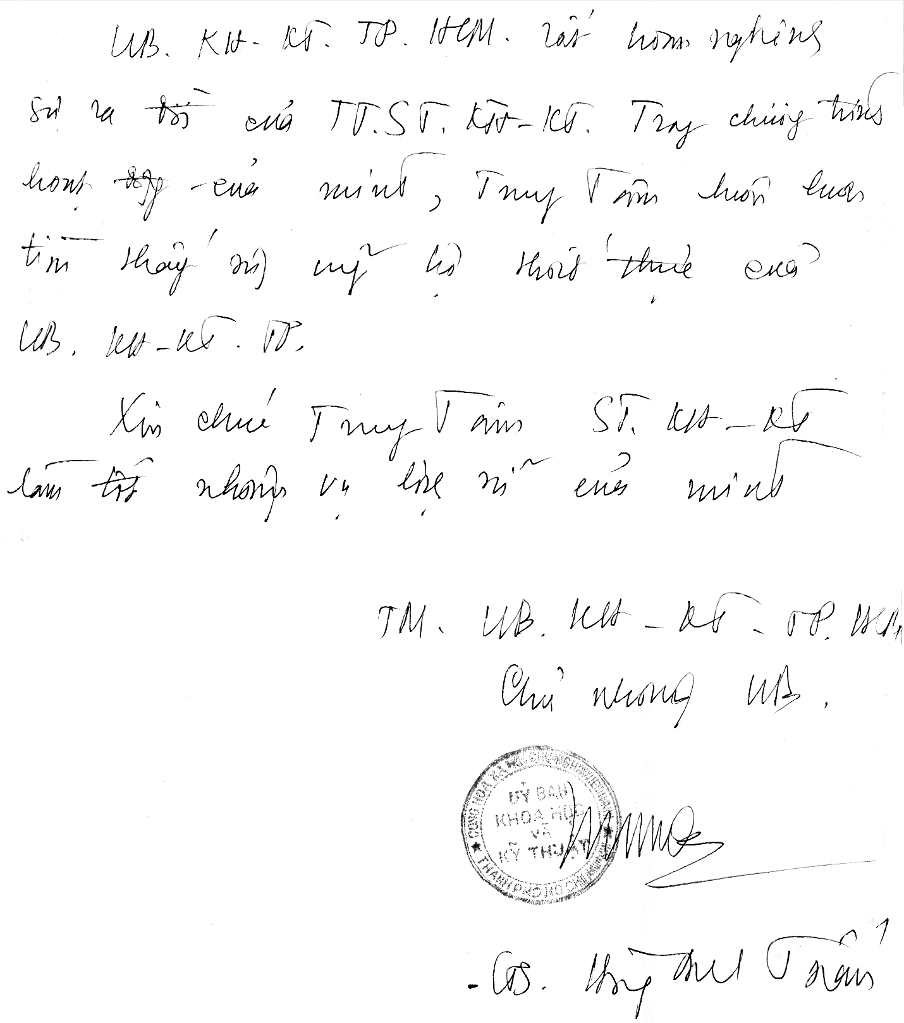 UB. KH-KT. TP. HCM. rất hoan nghênh
sự ra đời của TT.ST. KH-KT. Trong chương trình
hoạt động của mình, Trung Tâm luôn luôn
tìm thấy sự ủng hộ thiết thực của
UB. KH-KT. TP.
Xin chúc Trung Tâm ST. KH-KT
làm tốt nhiệm vụ của mình
TM. UB. KH-KT-TP. HCM
Chủ nhiệm UB.
CỘNG HÒA XÃ HỘI CHỦ NGHĨA VIỆT NAM
ỦY BAN
KHOA HỌC
VÀ
KỸ THUẬT
THÀNH PHỐ HỒ CHÍ MINH
-GS.